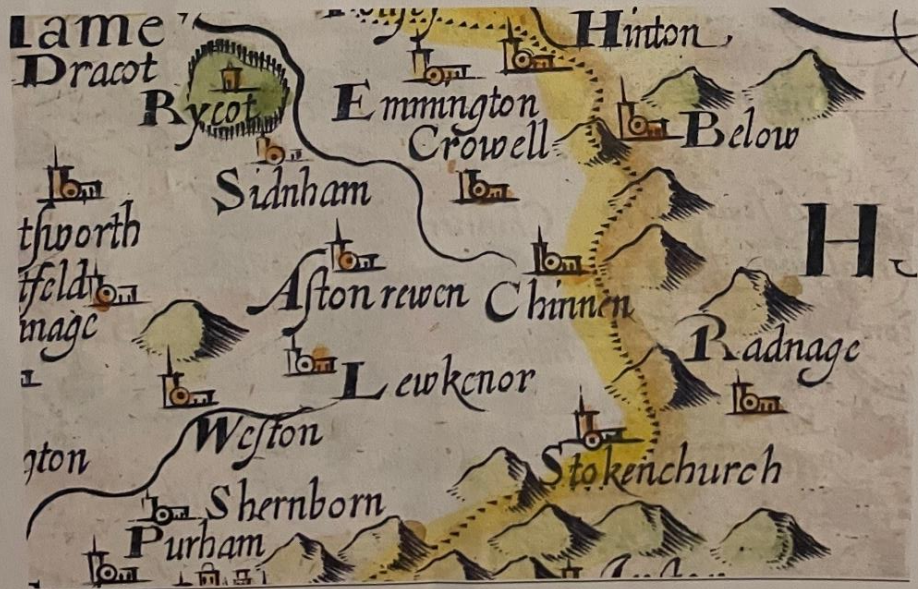 Tame
Hinton
Dracot
Rycot
Emmington
Crowell
Below
Sidnham
tsworth
H
tfeld
Aston rewen
Chinnen
nage
Radnage
Lewkenor
Weston
gton
Stokenchurch
Shernborn
Purham